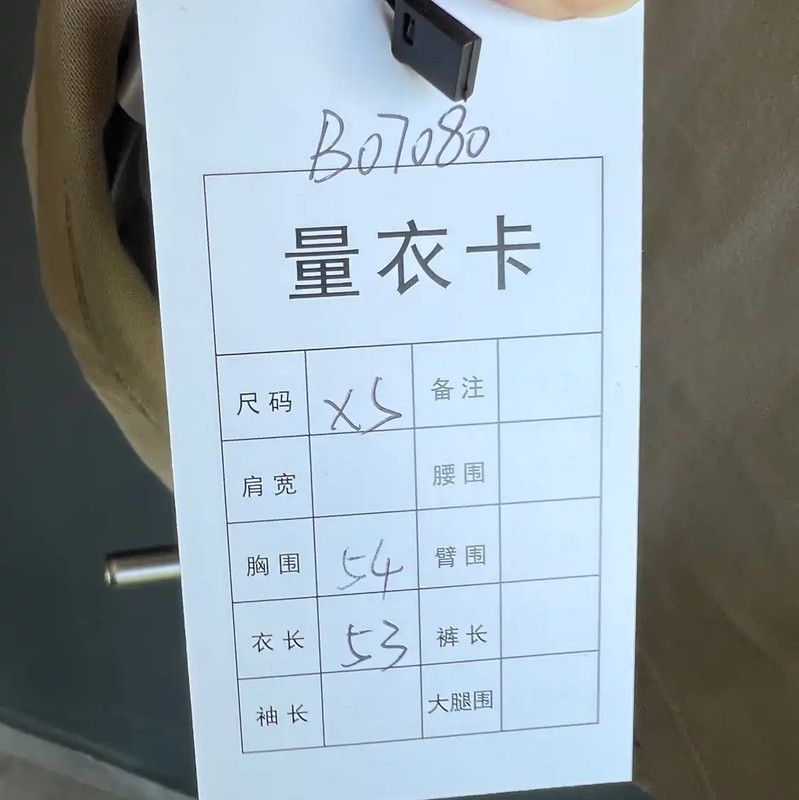 B07080
量衣卡
尺码 XS 备注
肩宽 腰围
胸围 54 臂围
衣长 53 裤长
袖长 大腿围